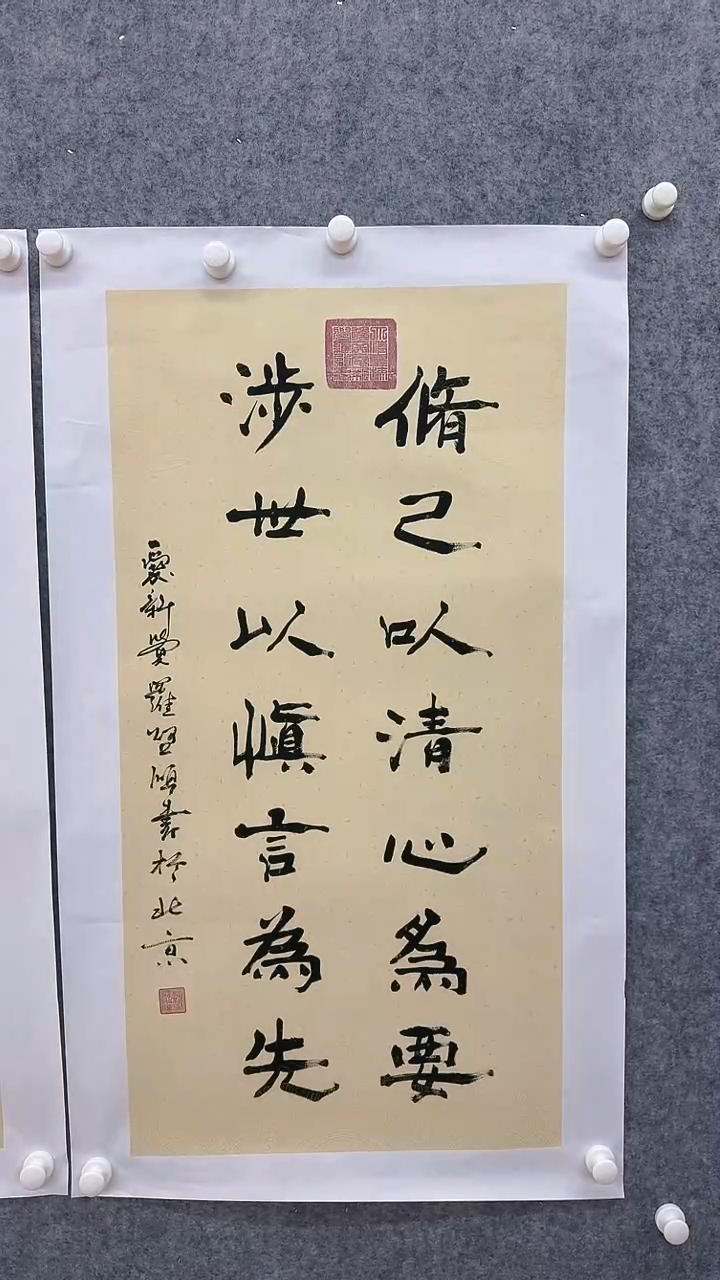 脩己以清心為要
涉世以慎言為先
愛新覺羅啓頎書於北京